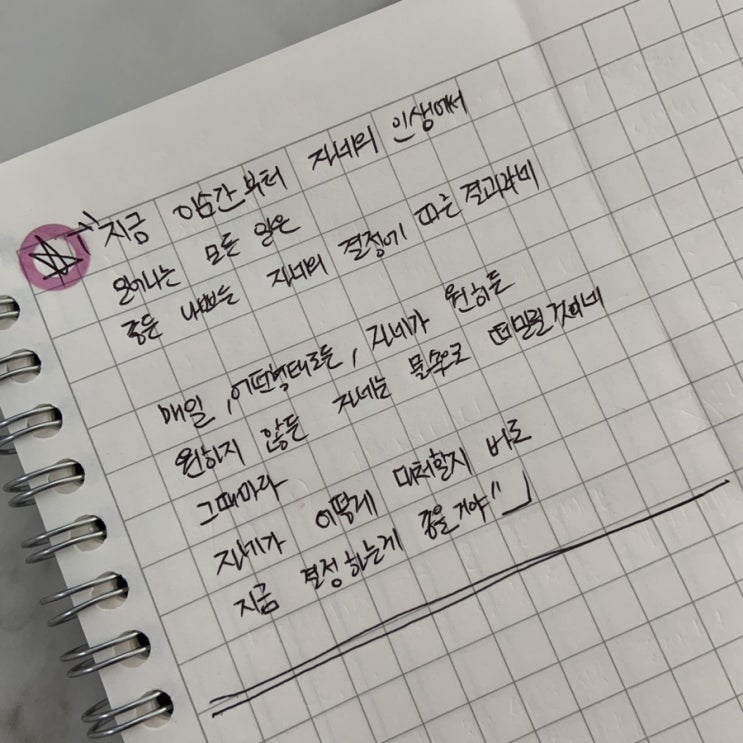 지금 이순간부터 자네의 인생에서
일어나는 모든 일은
좋든 나쁘든 자네의 결정에 따른결과라네
매일, 어떤형태로든, 자네가 원하든
원하지 않든 자네는 물속으로 떠밀릴것이네
그때마다
자기가 어떻게 대처할지 바로
지금 결정하는게 좋을거야"」